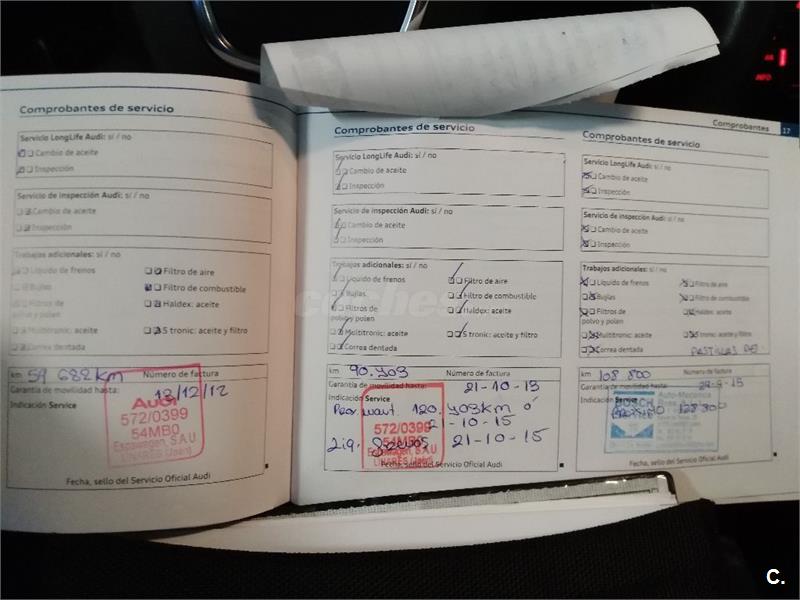 Comprobantes
17
Comprobantes de servicio
Servicio LongLife Audi: sí / no
Cambio de aceite
Inspección
Servicio de inspección Audi: sí / no
Cambio de aceite
Inspección
Trabajos adicionales: sí / no
Líquido de frenos
Filtro de aire
Bujías
Filtro de combustible
Filtros de polvo y polen
Haldex: aceite
Multitronic: aceite
S tronic: aceite y filtro
Correa dentada
km 59 682km
Número de factura
Garantía de movilidad hasta: 13/12/12
Indicación Service
Audi
572/0399
54MB0
Espawagen, S.A.U
LINARES (Jaén)
Fecha, sello del Servicio Oficial Audi
Comprobantes de servicio
Servicio LongLife Audi: sí / no
Cambio de aceite
Inspección
Servicio de inspección Audi: sí / no
Cambio de aceite
Inspección
Trabajos adicionales: sí / no
Líquido de frenos
Filtro de aire
Bujías
Filtro de combustible
Filtros de
polvo y polen
Haldex: aceite
Multitronic: aceite
S tronic: aceite y filtro
Correa dentada
km 90.703
Número de factura
Garantía de movilidad hasta: 21-10-13
Indicación Service
120.703km ó
21-10-15
21-10-15
572/0399
54MB0
Espawagen, S.A.U
LINARES (Jaén)
Fecha, sello del Servicio Oficial Audi
Comprobantes de servicio
Servicio LongLife Audi: sí / no
Cambio de aceite
Inspección
Servicio de inspección Audi: sí / no
Cambio de aceite
Inspección
Trabajos adicionales: sí / no
Líquido de frenos
Filtro de aire
Bujías
Filtro de combustible
Filtros de
polvo y polen
Haldex: aceite
Multitronic: aceite
S tronic: aceite y filtro
Correa dentada
PASTILLAS
km 108 800
Número de factura
Garantía de movilidad hasta:
Indicación Service
PROXIMO 128 800
BOSCH
Auto-Mecánica
Fecha, sello del Servicio Oficial Audi
coches
C.